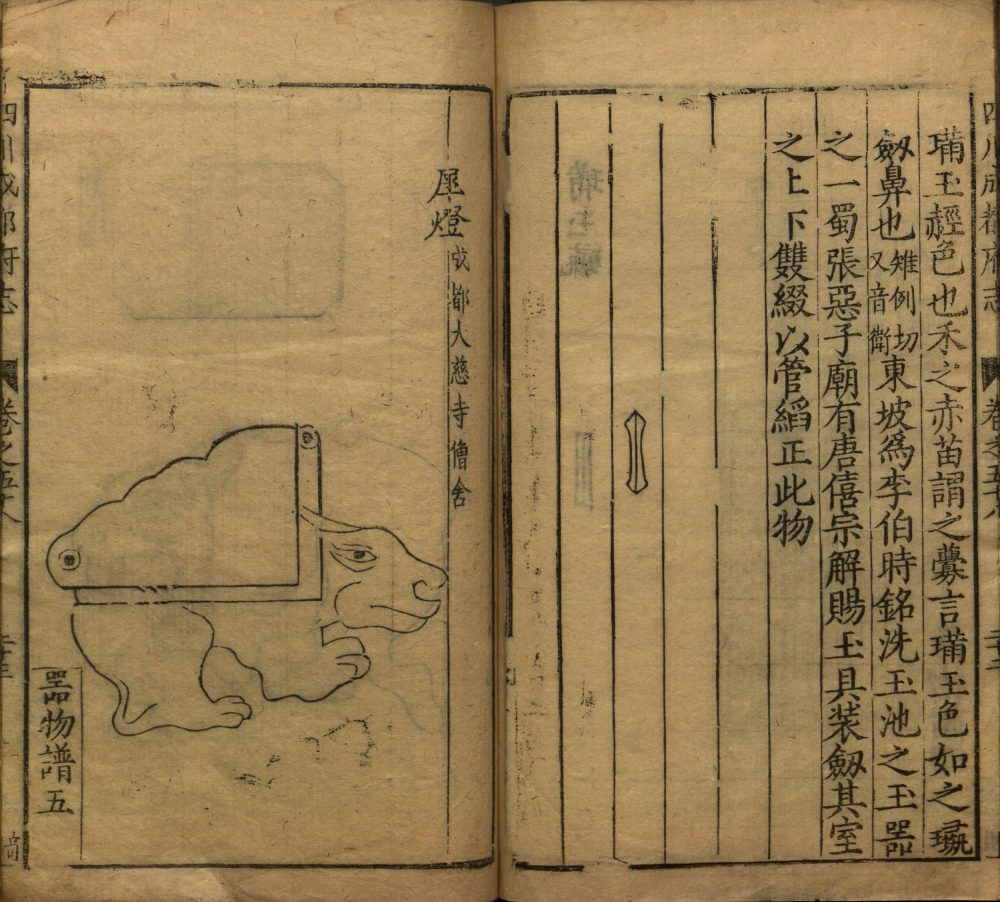 四川成都府志 卷之五十八
璊玉赬色也禾之赤苗謂之虋言璊玉色如之璏
劔鼻也雉例切又音衛東坡爲李伯時銘洗玉池之玉器
之一蜀張惡子廟有唐僖宗解賜玉具装劔其室
之上下雙綴以管縚正此物
犀燈成都大慈寺僧舍
器物譜五
四川成都府志 卷之五十八